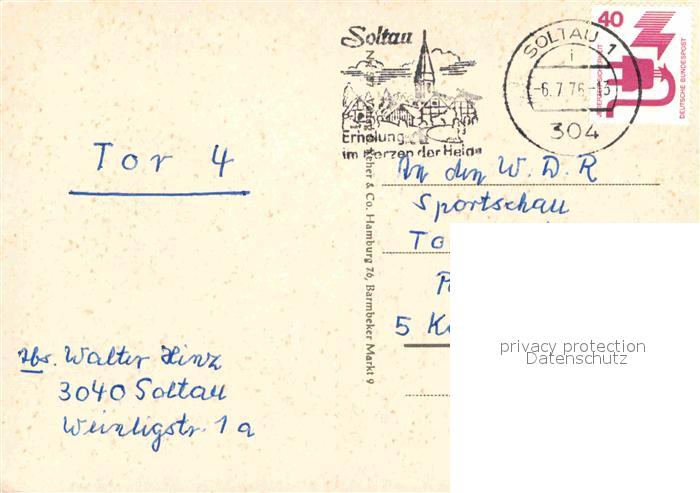 Soltau
Erholung
im Herzen der Heide
SOLTAU 1
i
-6.7.76-13
304
40
DEUTSCHE BUNDESPOST
Tor 4
An den W.D.R
Sportschau
To
5 K
Abs. Walter Hinz
3040 Soltau
Weinligstr. 1a
& Co. Hamburg 76, Barmbeker Markt 9
privacy protection
Datenschutz